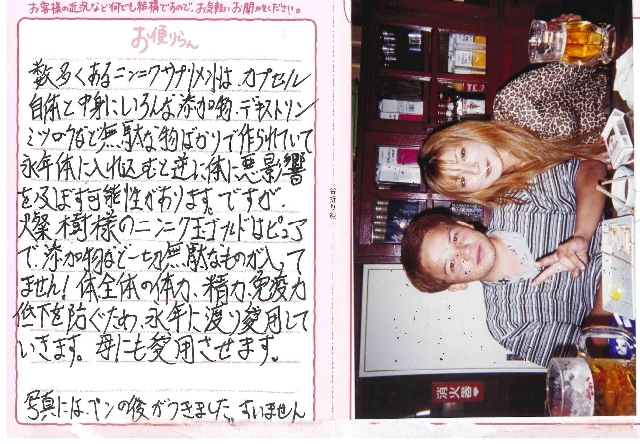 お客様の近況など何でも結構ですので、お気軽にお聞かせください。
お便りらん
数多くあるニンニクサプリメントは カプセル
自体と中身にいろんな添加物、デキストリン
ミツロウなど無駄な物ばかりで作られていて
永年体に入れ込むと逆に体に悪影響
を及ぼす可能性があります。ですが、
燦樹様のニンニク玉ゴールドはピュア
で添加物など一切無駄なものが入って
ません！体全体の体力、精力、免疫力
低下を防ぐため、永年に渡り愛用して
いきます。母にも愛用させます。
写真にはペンの後がつきました。すいません
谷折り線
消火器